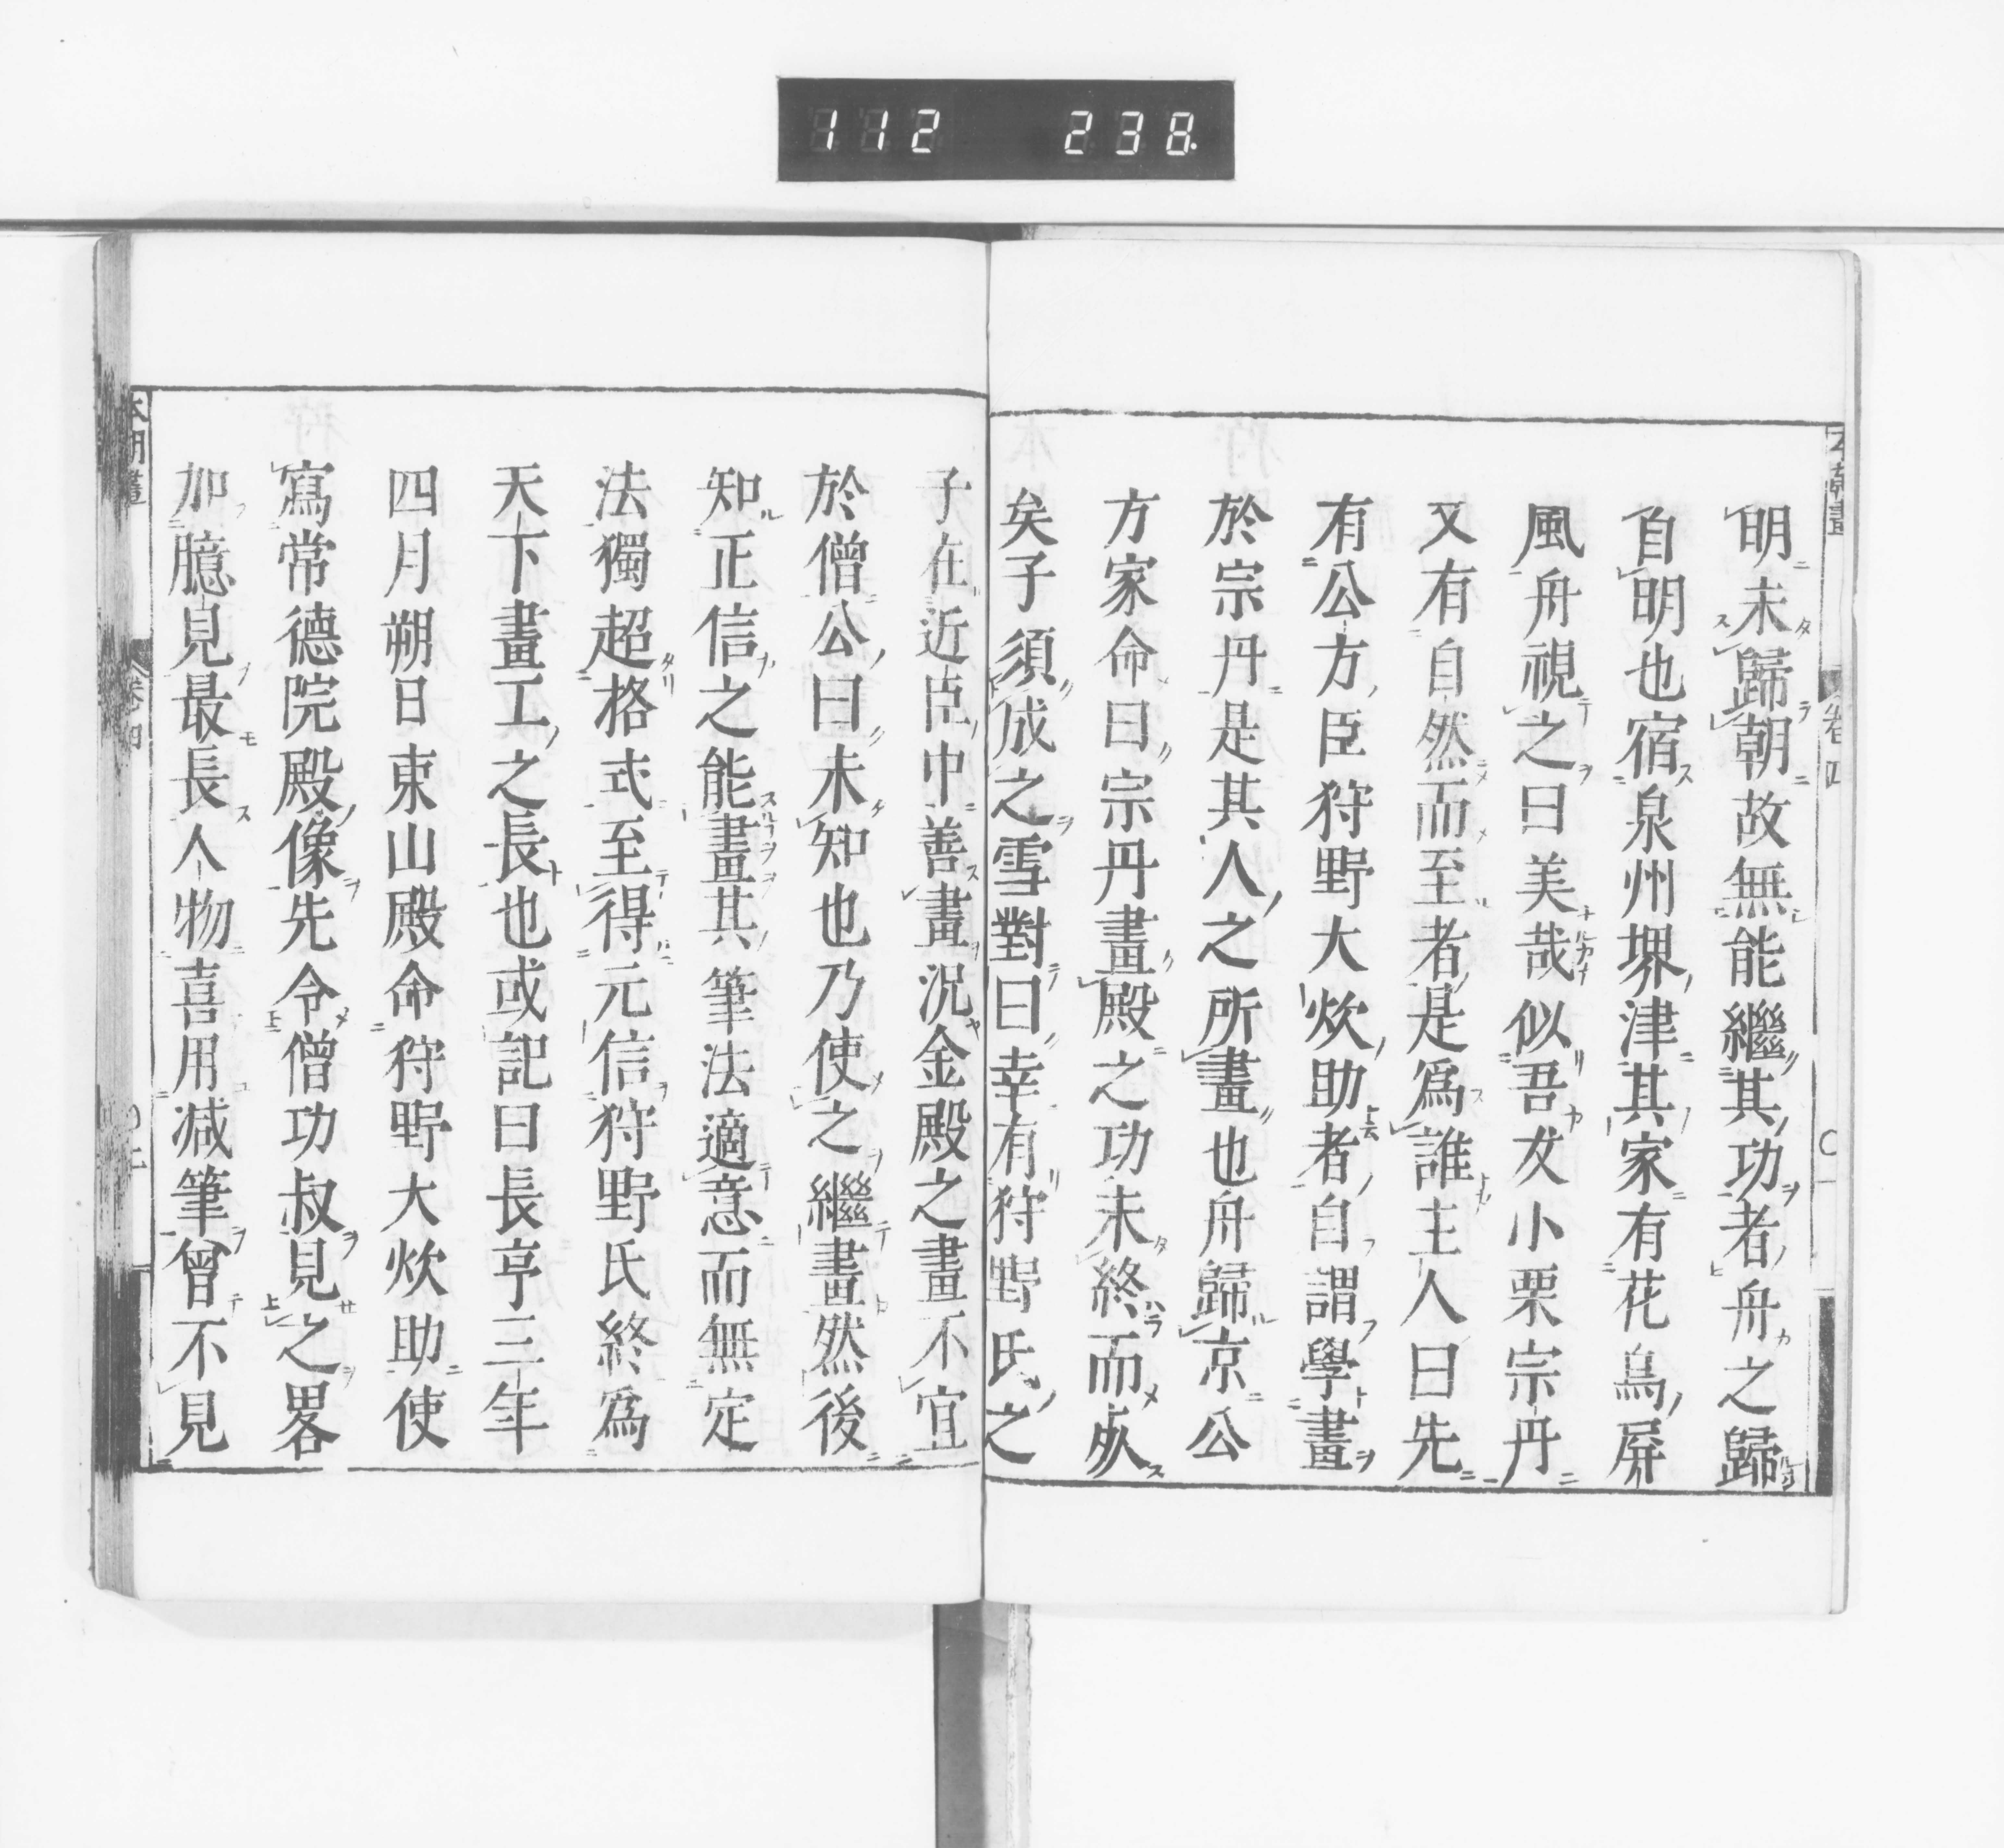 112 238.
本朝畫
卷四
明未歸朝故無能繼其功者舟之歸
自明也宿泉州堺津其家有花鳥屏
風舟視之曰美哉似吾友小栗宗丹
又有自然而至者是爲誰主人曰先
有公方臣狩野大炊助者自謂學畫
於宗丹是其人之所畫也舟歸京公
方家命曰宗丹畫殿之功未終而歾
矣子須成之雪對曰幸有狩野氏之
子在近臣中善畫況金殿之畫不宜
於僧公曰未知也乃使之繼畫然後
知正信之能畫其筆法適意而無定
法獨超格式至得元信狩野氏終爲
天下畫工之長也或記曰長亨三年
四月朔日東山殿命狩野大炊助使
寫常德院殿像先令僧功叔見之畧
加臆見最長人物喜用減筆曾不見
本朝畫
卷四